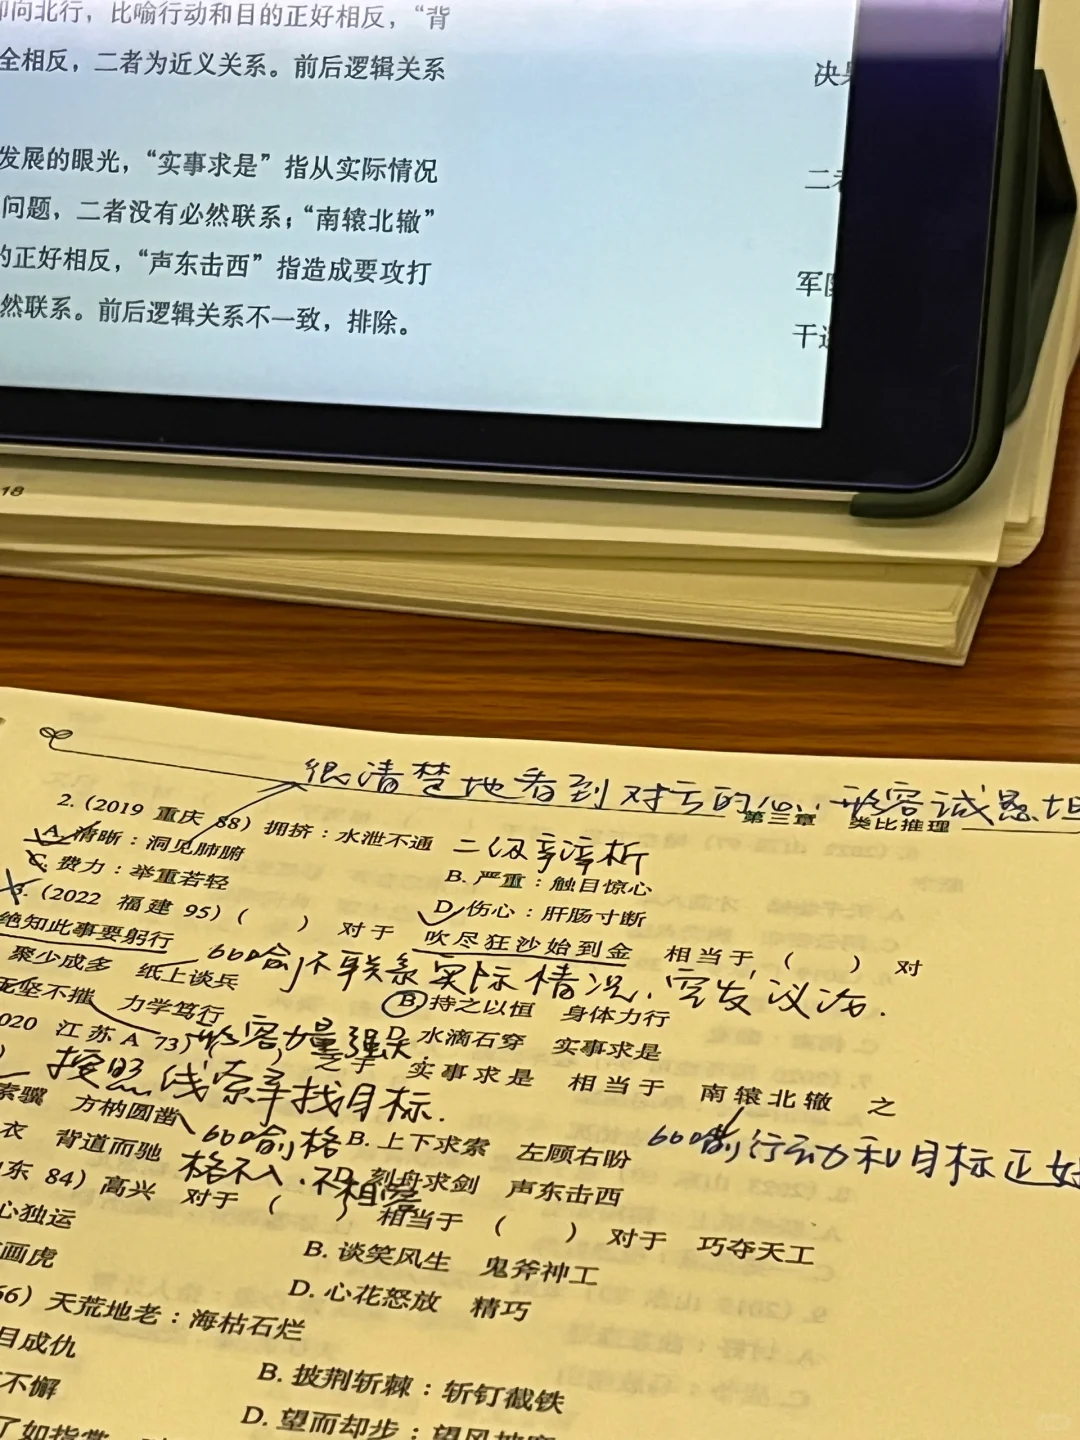 却向北行，比喻行动和目的正好相反，“背
全相反，二者为近义关系。前后逻辑关系
发展的眼光，“实事求是”指从实际情况
问题，二者没有必然联系；“南辕北辙”
的正好相反，“声东击西”指造成要攻打
然联系。前后逻辑关系不一致，排除。
决
二
军
干
18
很清楚地看到对方的心，形容诚恳坦
第三章 类比推理
2.（2019 重庆 88）拥挤：水泄不通 二级辨析
A. 清晰：洞见肺腑
B. 严重：触目惊心
C. 费力：举重若轻
D. 伤心：肝肠寸断
3.（2022 福建 95）（ ）对于 吹尽狂沙始到金 相当于（ ）对
绝知此事要躬行
聚少成多 纸上谈兵
比喻不联系实际情况，空发议论.
B 持之以恒 身体力行
无坚不摧 力学笃行
形容力量强大.
D. 水滴石穿 实事求是
020 江苏A 73）（ ）之于 实事求是 相当于 南辕北辙 之
按照线索寻找目标.
索骥 方枘圆凿
比喻格格不入，不相容
B. 上下求索 左顾右盼
比喻行动和目标正好
衣 背道而驰
刻舟求剑 声东击西
东 84）高兴 对于（ ）相当于（ ）对于 巧夺天工
心独运
B. 谈笑风生 鬼斧神工
画虎
D. 心花怒放 精巧
66）天荒地老：海枯石烂
目成仇
B. 披荆斩棘：斩钉截铁
不懈
D. 望而却步：望风披靡
了如指掌